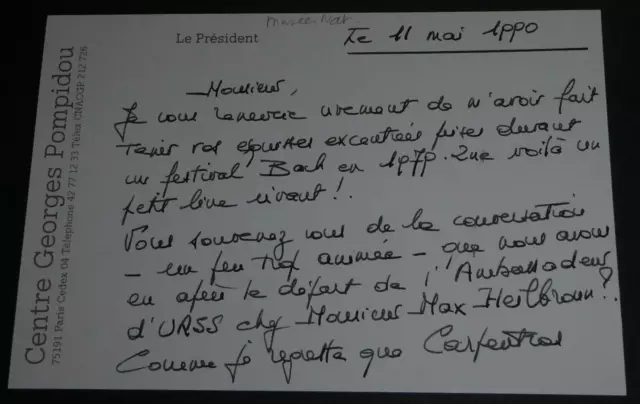 Le Président
Le 11 mai 1990
Centre Georges Pompidou
75191 Paris Cedex 04 Telephone 42 77 12 33 Télex CNACGP 212 726
Monsieur,
Je vous remercie vivement de m'avoir fait
tenir vos esquisses exécutées prises durant
un festival Bach en 1979. Que voilà un
petit livre vivant!.
Vous souvenez vous de la conversation
- un peu trop animée - que nous avons
eu après le départ de l'Ambassadeur
d'URSS chez Monsieur Max Heilbronn?.
Comme je regrette que Carpentras